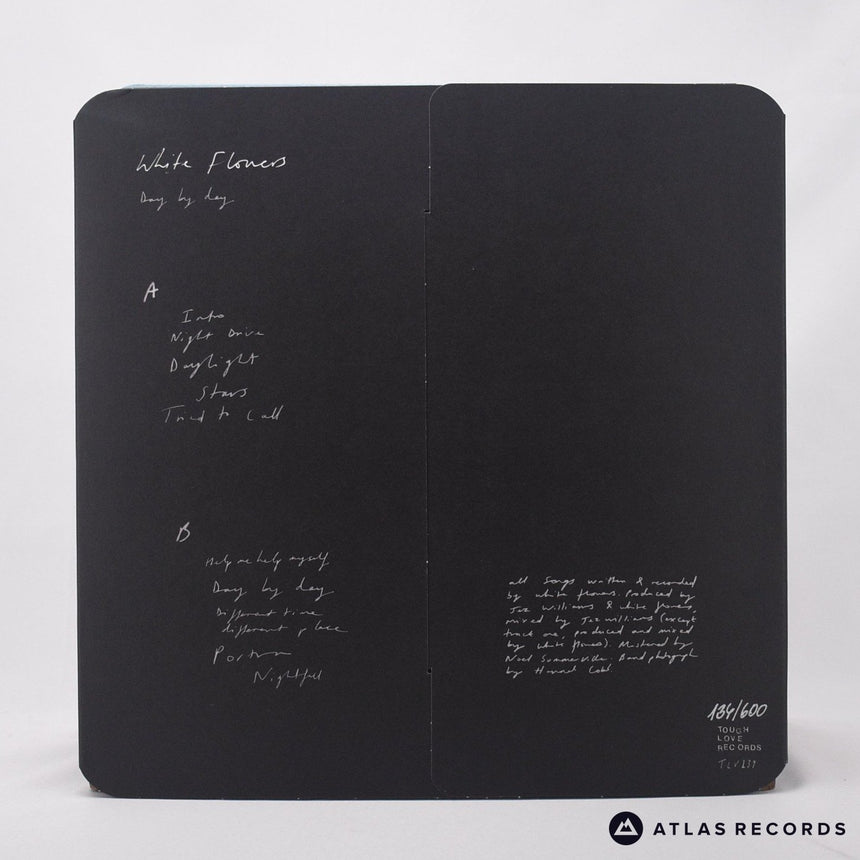 White Flowers
Day by day
A
Intro
Night Drive
Daylight
Stars
Tried to Call
B
Help me help myself
Day by day
Different time
different place
Portra
Nightfall
all songs written & recorded
by white flowers. Produced by
Jez Williams & white flowers,
mixed by Jez williams (except
track one, produced and mixed
by white flowers). Mastered by
Noel Summerville. Band photograph
by Hannah Cobb.
134/600
TOUGH
LOVE
RECORDS
ATLAS RECORDS